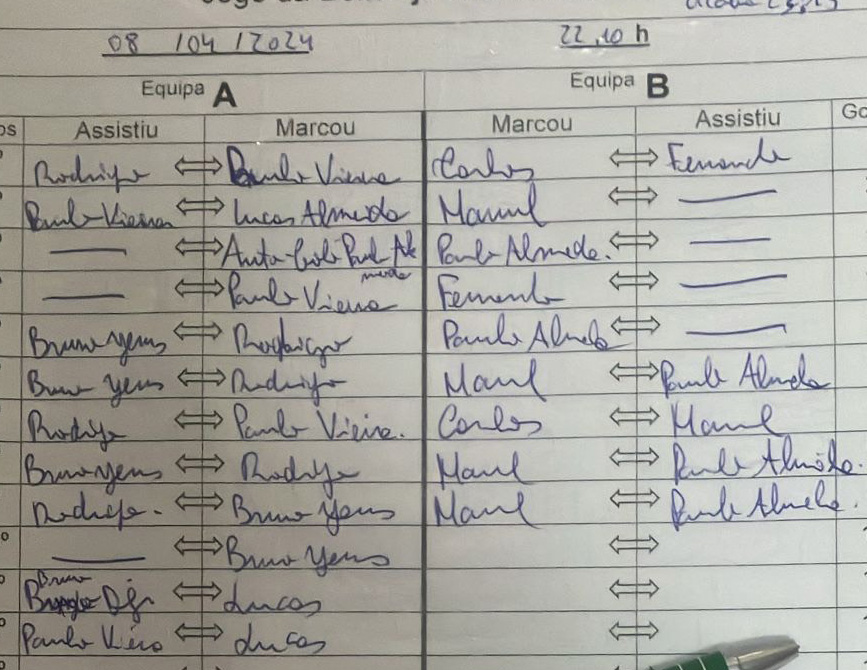 08 / 04 / 2024 22,10 h
Equipa A Equipa B
Assistiu Marcou Marcou Assistiu
Rodrigo ⇔ Paulo Vieira Carlos ⇔ Fernando
Paulo Vieira ⇔ Lucas Almeida Manuel ⇔ —
— ⇔ Auto-Golo Paul Almeida Paulo Almeida. ⇔ —
— ⇔ Paulo Vieira Fernando ⇔ —
Bruno ⇔ Rodrigo Paulo Almeida ⇔ —
Bruno ⇔ Rodrigo Manuel ⇔ Paulo Almeida
Rodrigo ⇔ Paulo Vieira. Carlos ⇔ Manuel
Bruno ⇔ Rodrigo Manuel ⇔ Paulo Almeida.
Rodrigo. ⇔ Bruno Manuel ⇔ Paulo Almeida.
— ⇔ Bruno ⇔
Bruno ⇔ Lucas ⇔
Paulo Vieira ⇔ Lucas ⇔